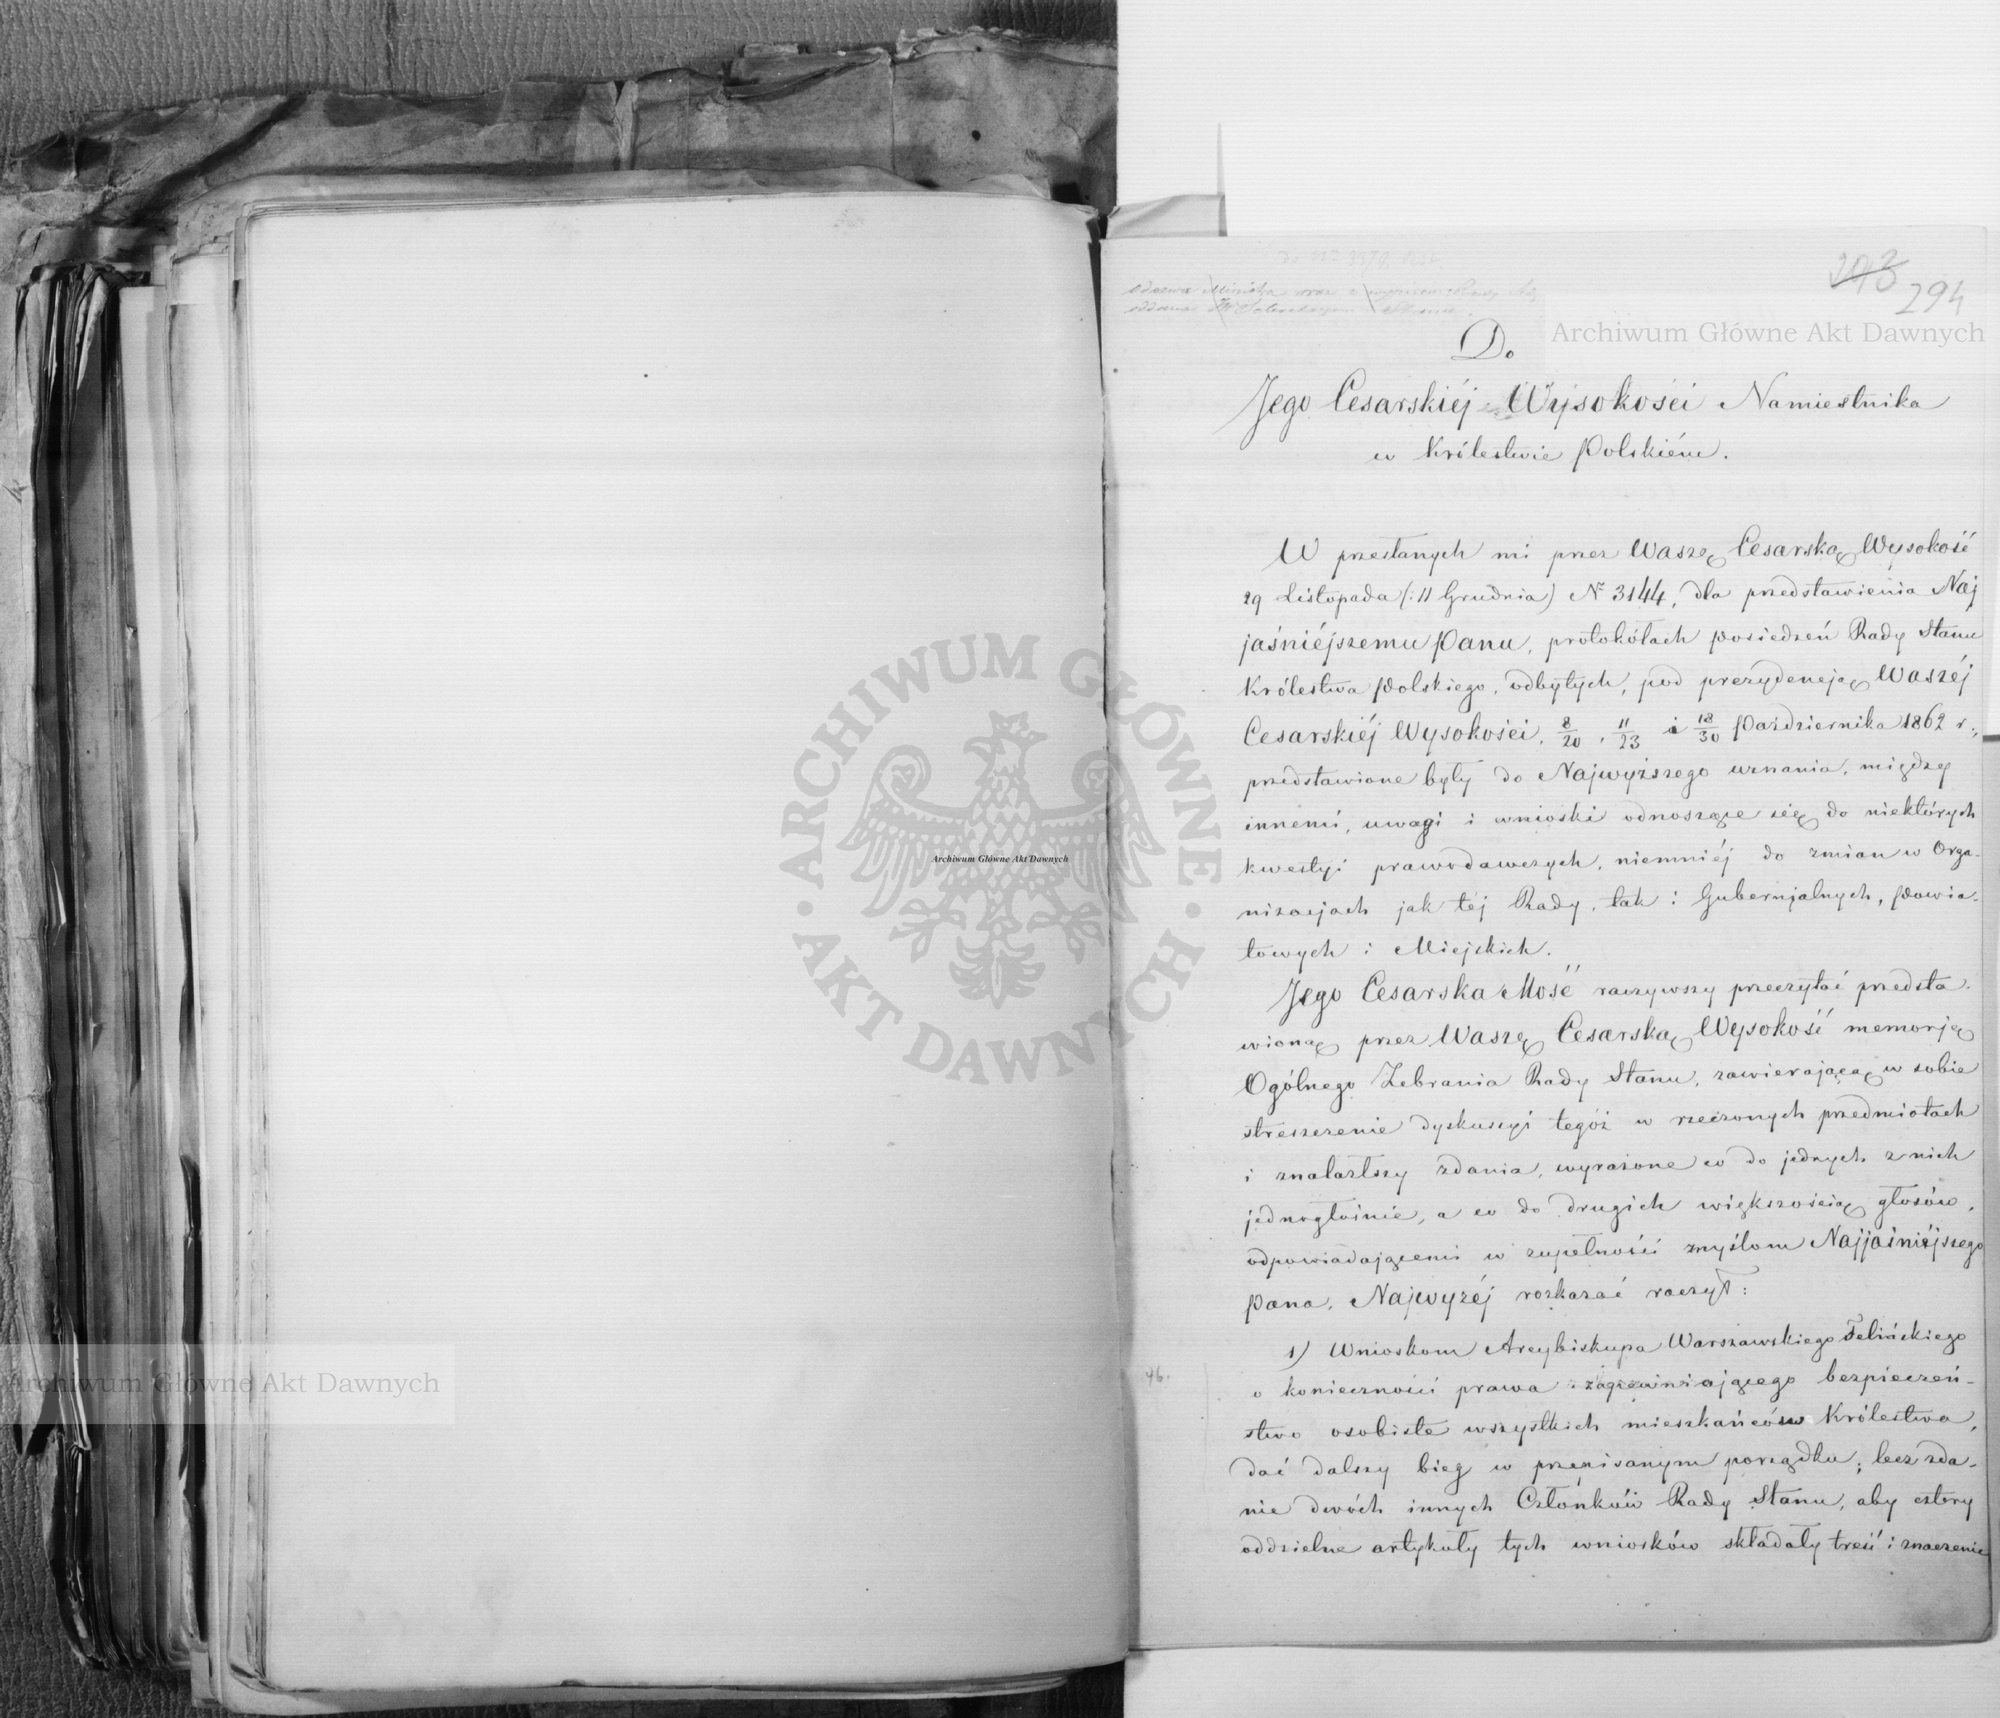 293
294
Archiwum Główne Akt Dawnych
Do
Jego Cesarskiéj Wysokości Namiestnika
w Królestwie Polskiém.
W przesłanych mi przez Waszę Cesarską Wysokość
29 Listopada (:11 Grudnia) Nº 3144, dla przedstawienia Naj
jaśniéjszemu Panu, protokółach posiedzeń Rady Stanu
Królestwa Polskiego, odbytych, pod prezydencją Waszéj
Cesarskiéj Wysokości, 8/20, 11/23 i 18/30 Października 1862 r.,
przedstawione były do Najwyższego uznania, między
innemi, uwagi i wnioski odnoszące się do niektórych
kwestyi prawodawczych, niemniéj do zmian w Orga-
nizacjach jak téj Rady, tak i Gubernjalnych, Powia-
towych i Miejskich.
Jego Cesarska Mość raczywszy przeczytać przedsta-
wioną przez Waszę Cesarską Wysokość memorję
Ogólnego Zebrania Rady Stanu, zawierającą w sobie
streszczenie dyskussyi tegóż w rzeczonych przedmiotach
i znalazłszy zdania, wyrażone co do jednych z nich
jednogłośnie, a co do drugich większością głosów,
odpowiadającemi w zupełności myślom Najjaśniéjszego
Pana, Najwyżéj rozkazać raczył:
1) Wnioskom Arcybiskupa Warszawskiego Felińskiego
46.
o konieczności prawa zapewniającego bezpieczeń-
stwo osobiste wszystkich mieszkańców Królestwa,
dać dalszy bieg w przepisanym porządku; lecz zda-
nie dwóch innych Członków Rady Stanu, aby cztery
oddzielne artykuły tych wniosków składały treść i znaczenie
ARCHIWUM GŁÓWNE · AKT DAWNYCH ·
Archiwum Główne Akt Dawnych
Archiwum Główne Akt Dawnych